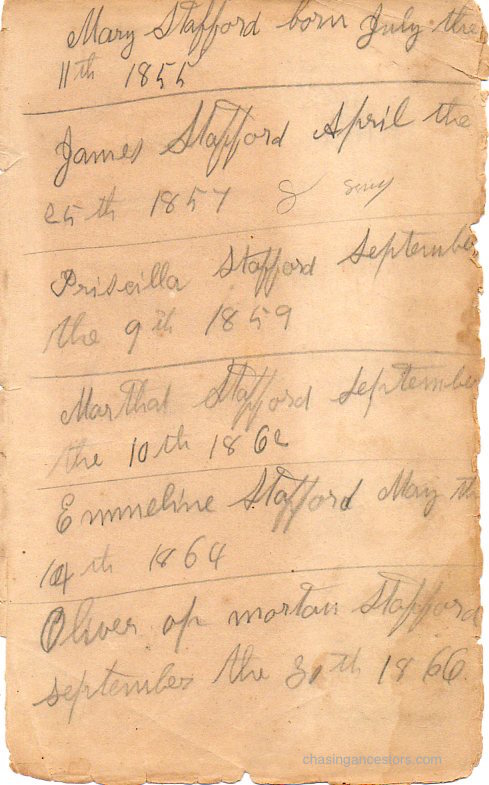 Mary Stafford born July the
11th 1855
James Stafford April the
25th 1857
Priscilla Stafford September
the 9th 1859
Marthat Stafford September
the 10th 1862
Emmeline Stafford May th
14th 1864
Oliver op mortan Stafford
september the 30th 1866
chasingancestors.com